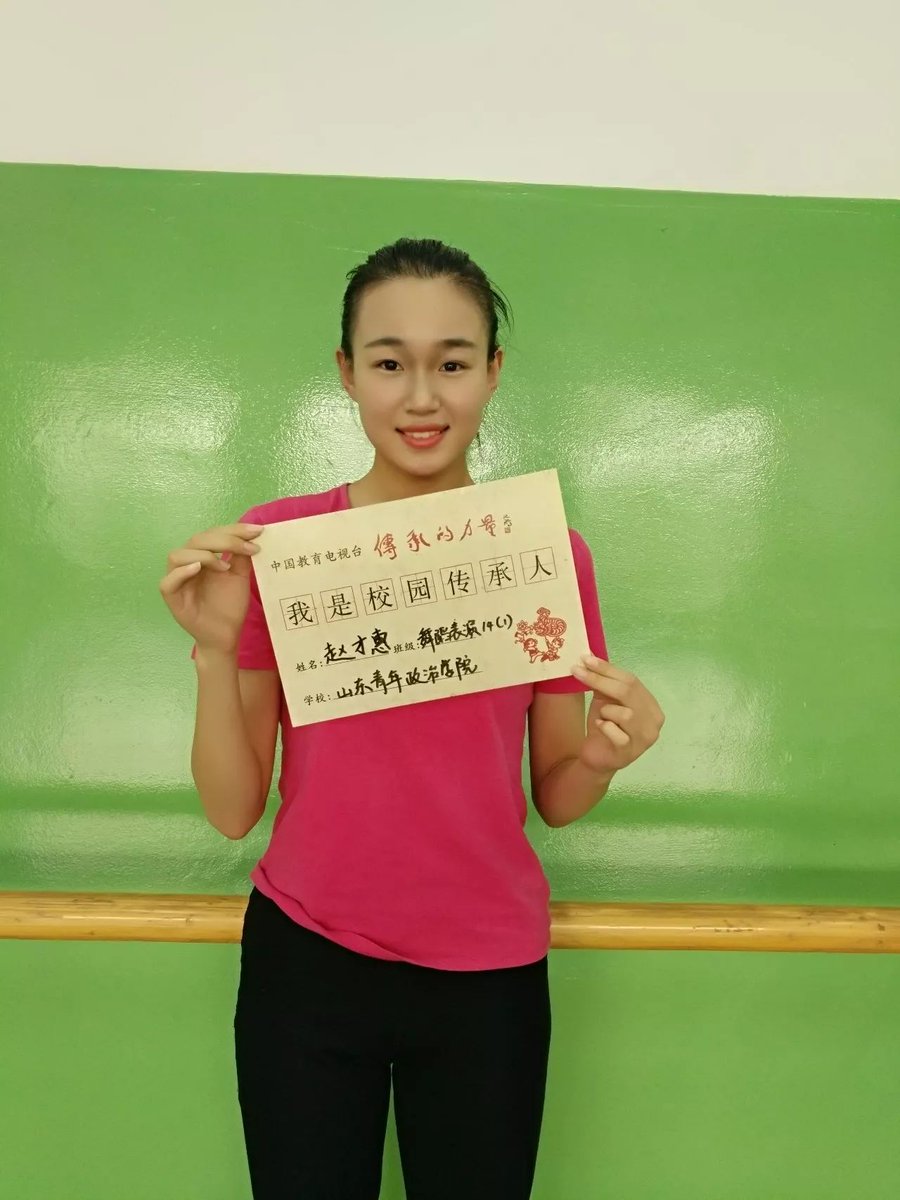 中国教育电视台 傳承的力量
我是校园传承人
姓名:赵才惠 班级:舞蹈表演14(1)
学校:山东青年政治学院